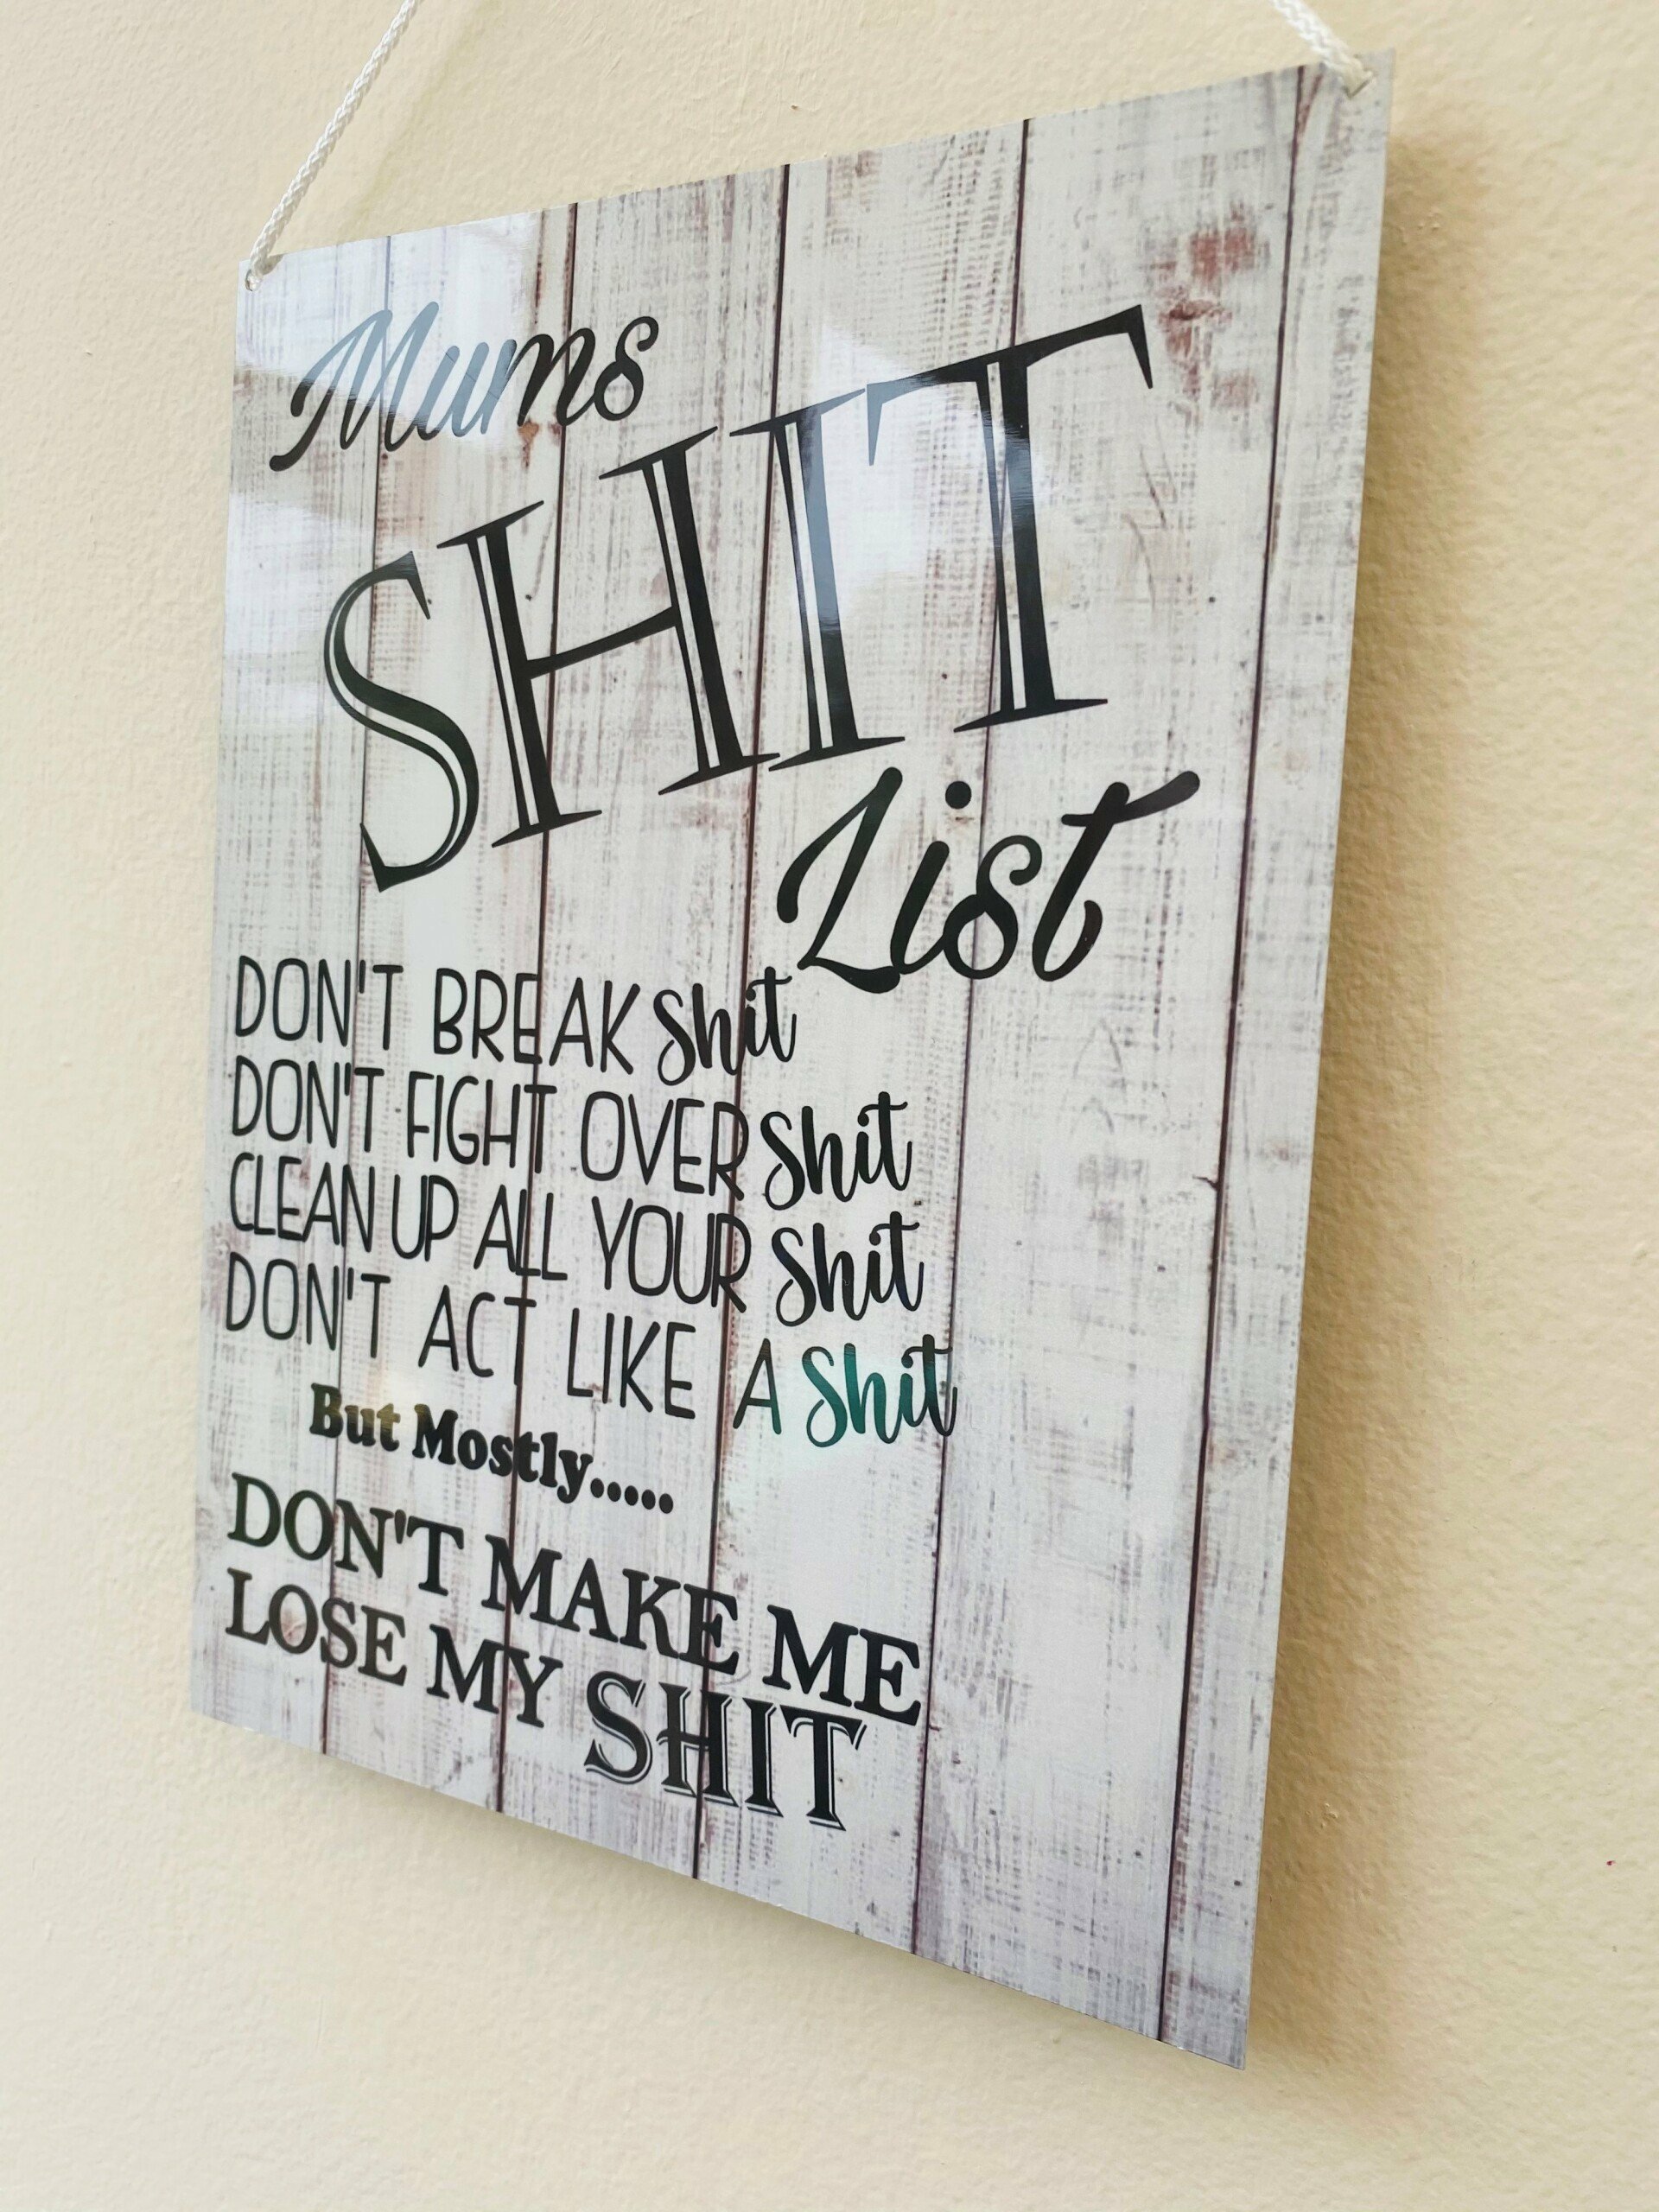 Mums
SHIT
List
DON'T BREAK Shit
DON'T FIGHT OVER Shit
CLEAN UP ALL YOUR Shit
DON'T ACT LIKE A Shit
But Mostly.....
DON'T MAKE ME
LOSE MY SHIT